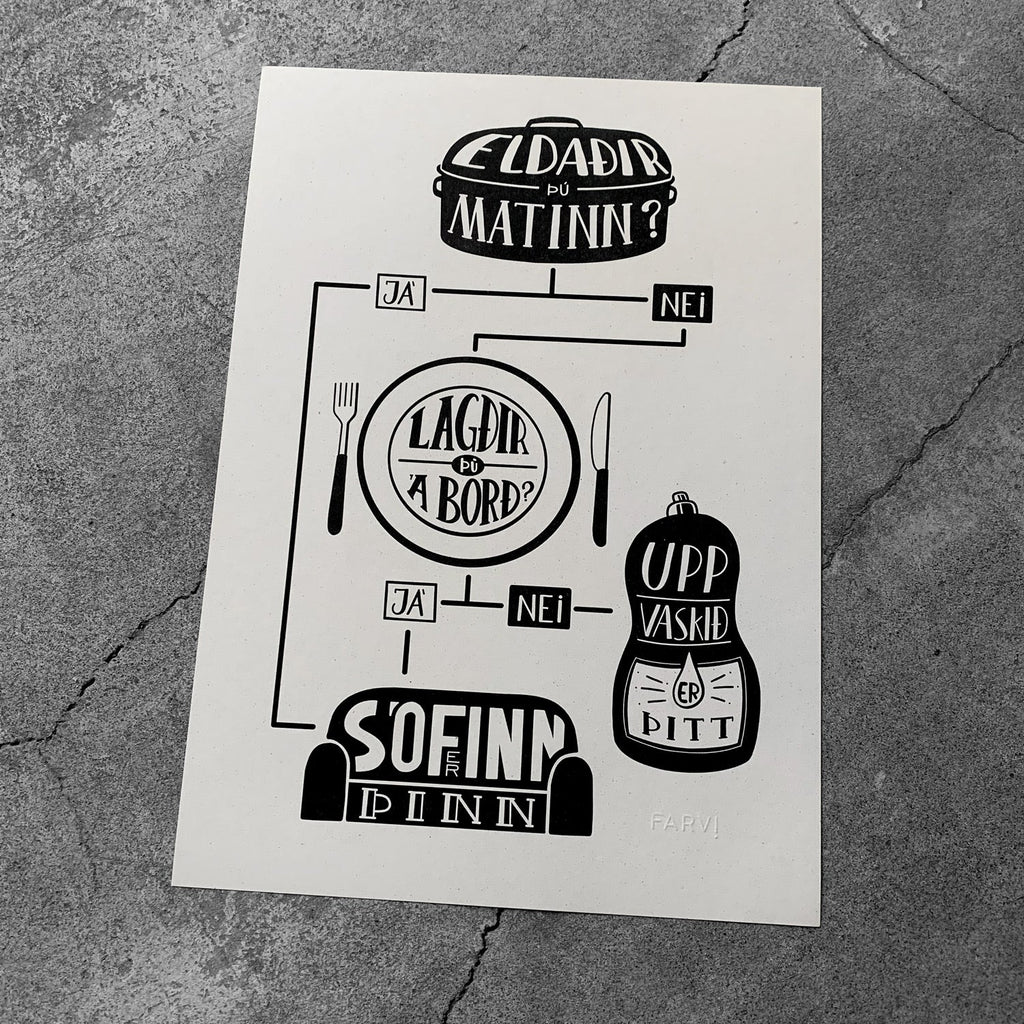 ELDAÐIR
ÞÚ
MATINN?
JÁ
NEI
LAGÐIR
ÞÚ
Á BORÐ?
JÁ
NEI
UPP
VASKIÐ
ER
ÞITT
SÓFINN
ER
ÞINN
FARVI